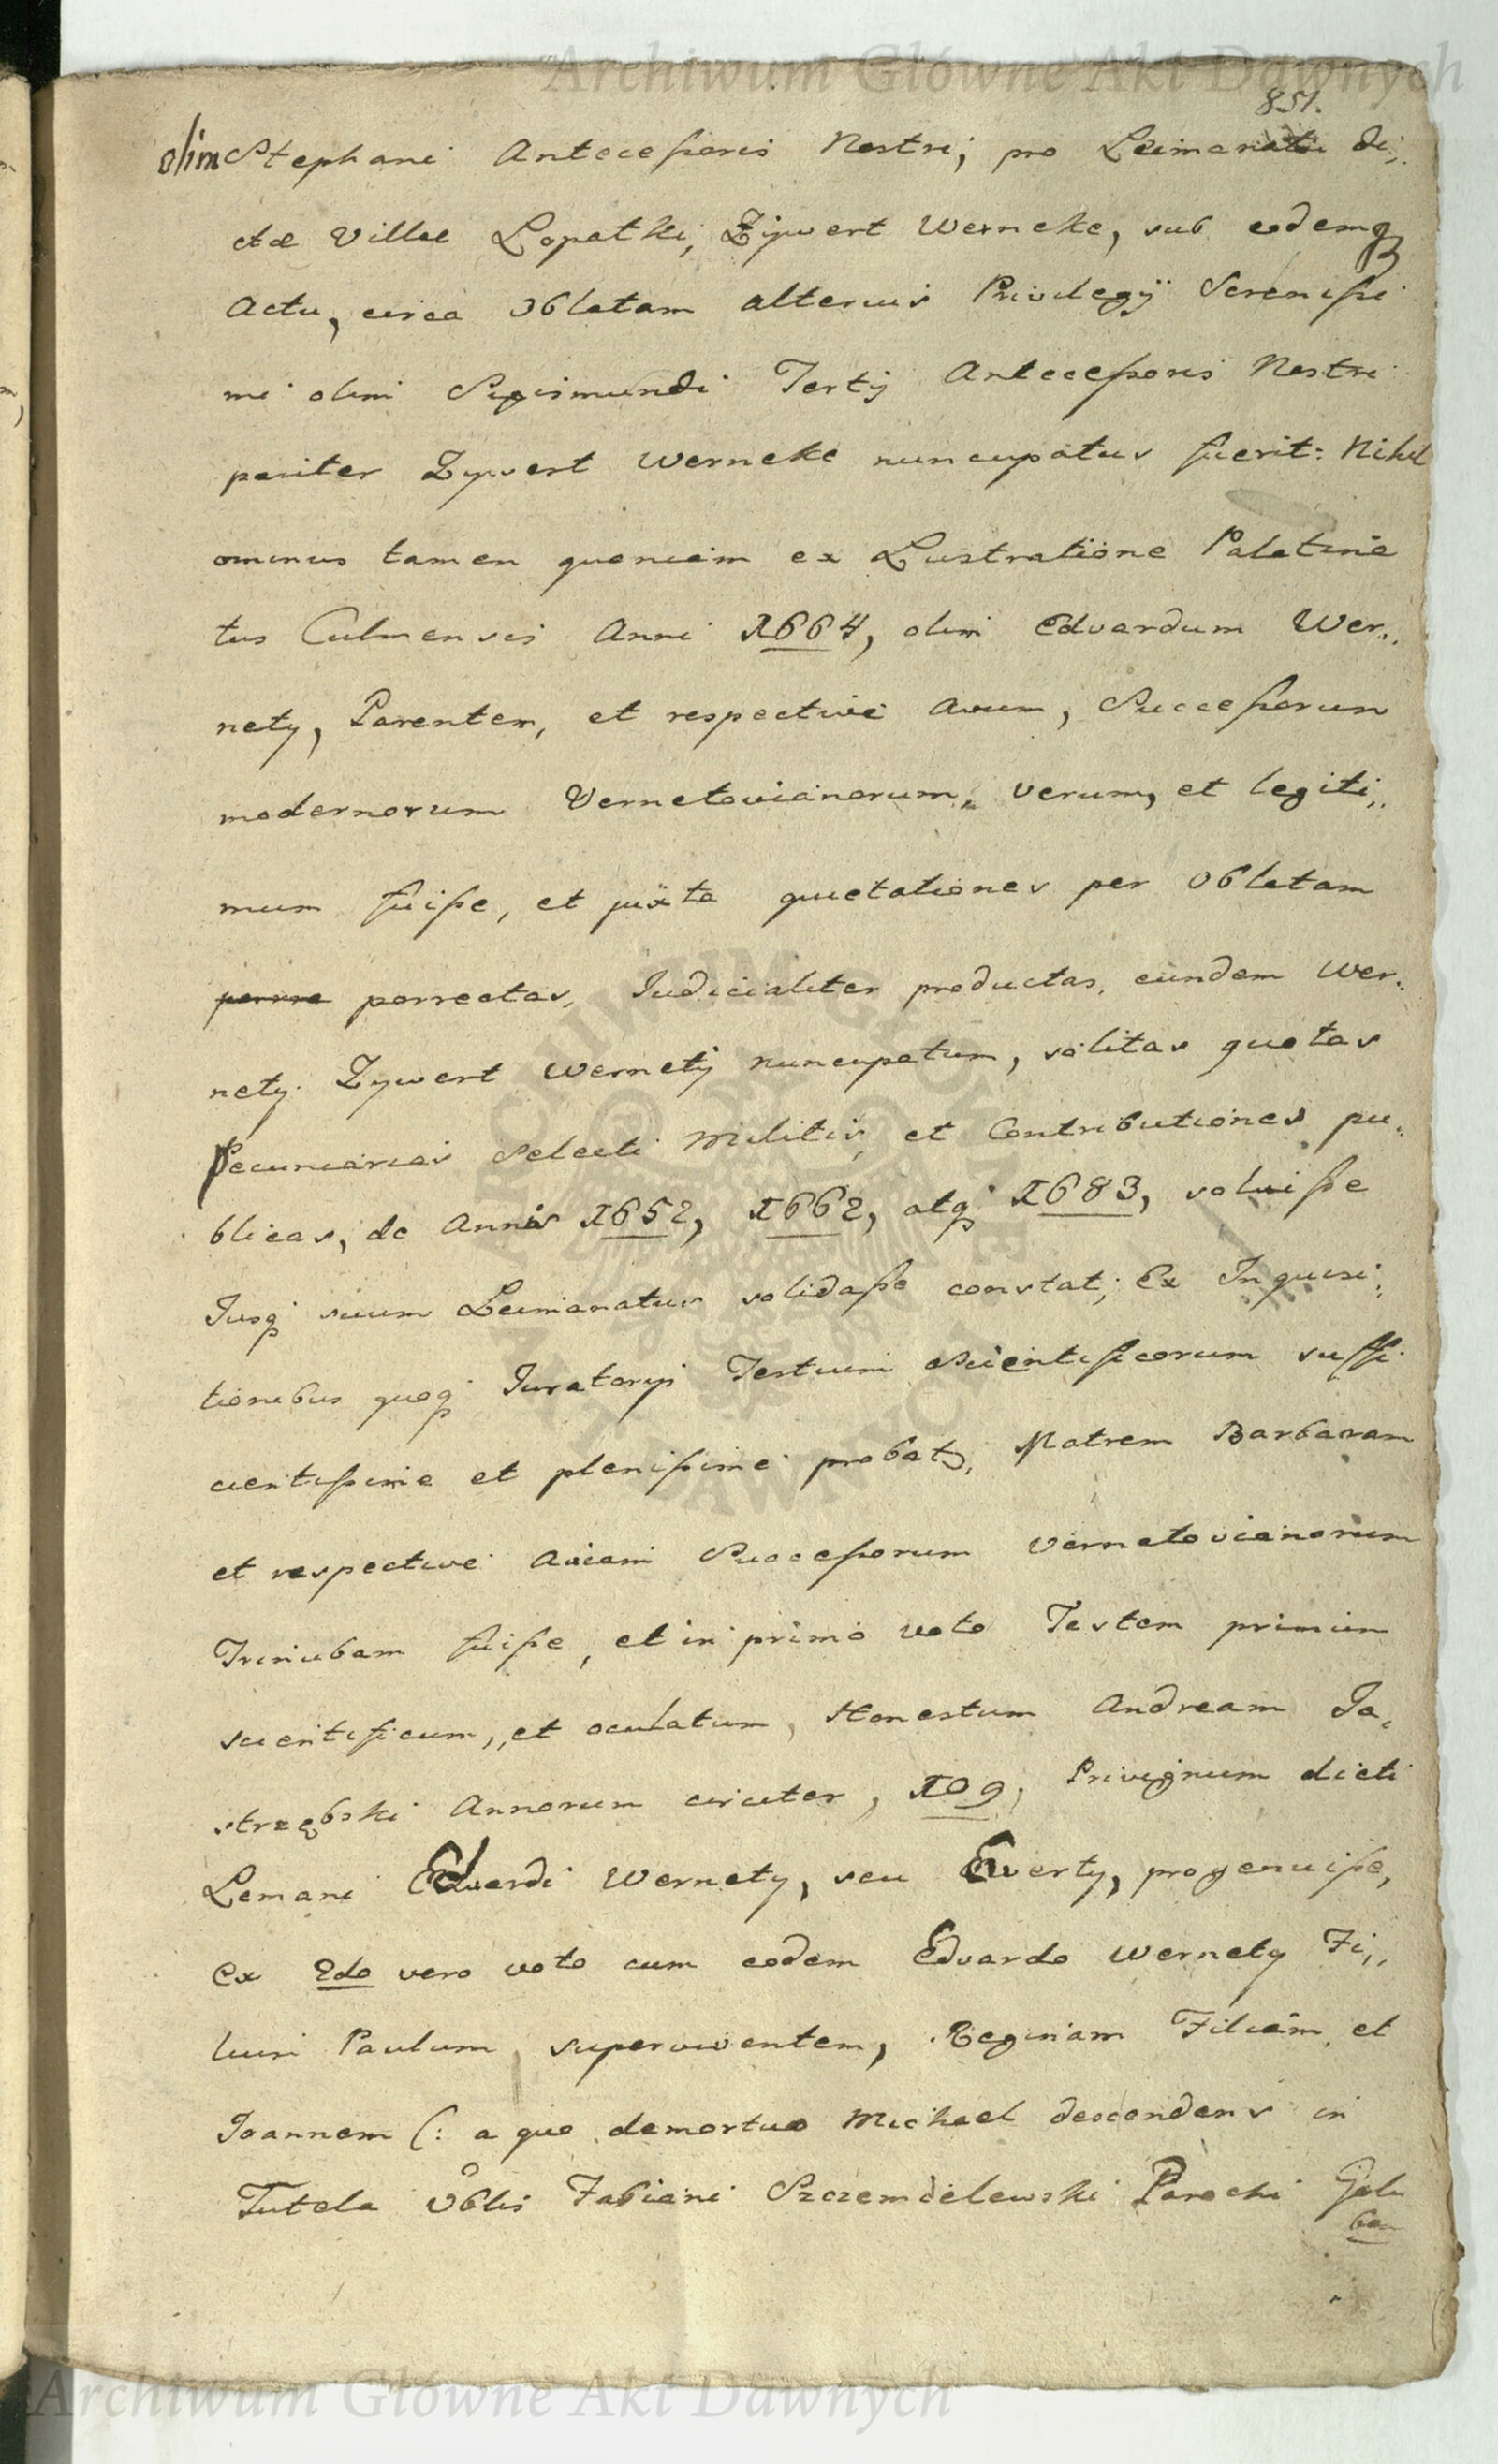 Archiwum Główne Akt Dawnych
851.
olim Stephani Antecessoris Nostri, pro Leimanatu di,,
ctæ Villæ Lopatki, Zywert Werneke, sub eodemq
Actu, circa Oblatam alterius Privilegÿ Serenissi
mi olim Sigismundi Tertÿ Antecessoris Nostri
pariter Zywert Werneke nuncupatus fuerit: Nihil
ominus tamen quoniam ex Lustratione Palatina
tus Culmensis Anni 1664, olim Edvardum Wer,,
nety, Parentem, et respective Avum, Successorum
modernorum Vernetovianorum, verum, et legiti,,
mum fuisse, et juxta quietationes per Oblatam
porre porrectas, Judicialiter productas, eundem Wer,,
nety Zywert Wernety nuncupatum, solitas quotas
Pecuniarias Selecti Militis, et Contributiones pu,,
blicas, de Annis 1652, 1662, atq 1683, solvisse
Jusq suum Leimanatus solidasse constat; Ex Inquisi,,
tionibus quoq Juratorÿs Testium Scientificorum suffi
cientissime et plenissime probat, Matrem Barbaram
et respective Aviam Successorum Vernetovianorum
Trinubam fuisse, et in primo voto Testem primum
scientificum, et oculatum, Honestum Andream Ja,
strzębski Annorum circiter, 109, Privignum dicti
Lemani Edvardi Wernety, seu Everty, progenuisse,
Ex 2do vero voto cum eodem Edvardo Wernety Fi,,
lium Paulum supervivientem, Reginam Filiam et
Joannem (: a quo demortuo Michael descendens in
Tutela Oblis Fabiani Szczemdelewski Parochi Golu
ben
Archiwum Główne Akt Dawnych